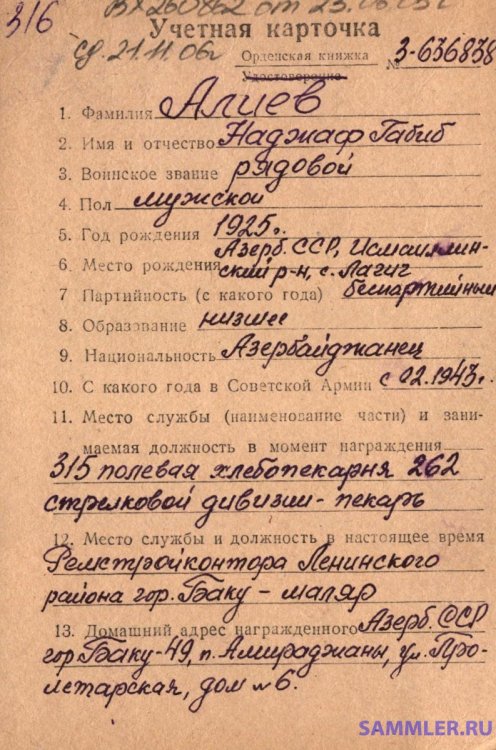 316
Вх260862 от 23.08.
Учетная карточка
ср. 21.11.06г
Орденская книжка
Удостоверение № З-636838
1. Фамилия Алиев
2. Имя и отчество Наджаф Габиб
3. Воинское звание рядовой
4. Пол мужской
5. Год рождения 1925г.
6. Место рождения Азерб. ССР, Исмаиллин-
ский р-н, с. Лагич
7 Партийность (с какого года) беспартийный
8. Образование низшее
9. Национальность Азербайджанец
10. С какого года в Советской Армии с 02.1943г.
11. Место службы (наименование части) и зани-
маемая должность в момент награждения
315 полевая хлебопекарня 262
стрелковой дивизии - пекарь
12. Место службы и должность в настоящее время
Ремстройконтора Ленинского
района гор. Баку - маляр
13. Домашний адрес награжденного Азерб. ССР
гор. Баку-49, п. Амираджаны, ул. Про-
летарская, дом № 6.
SAMMLER.RU